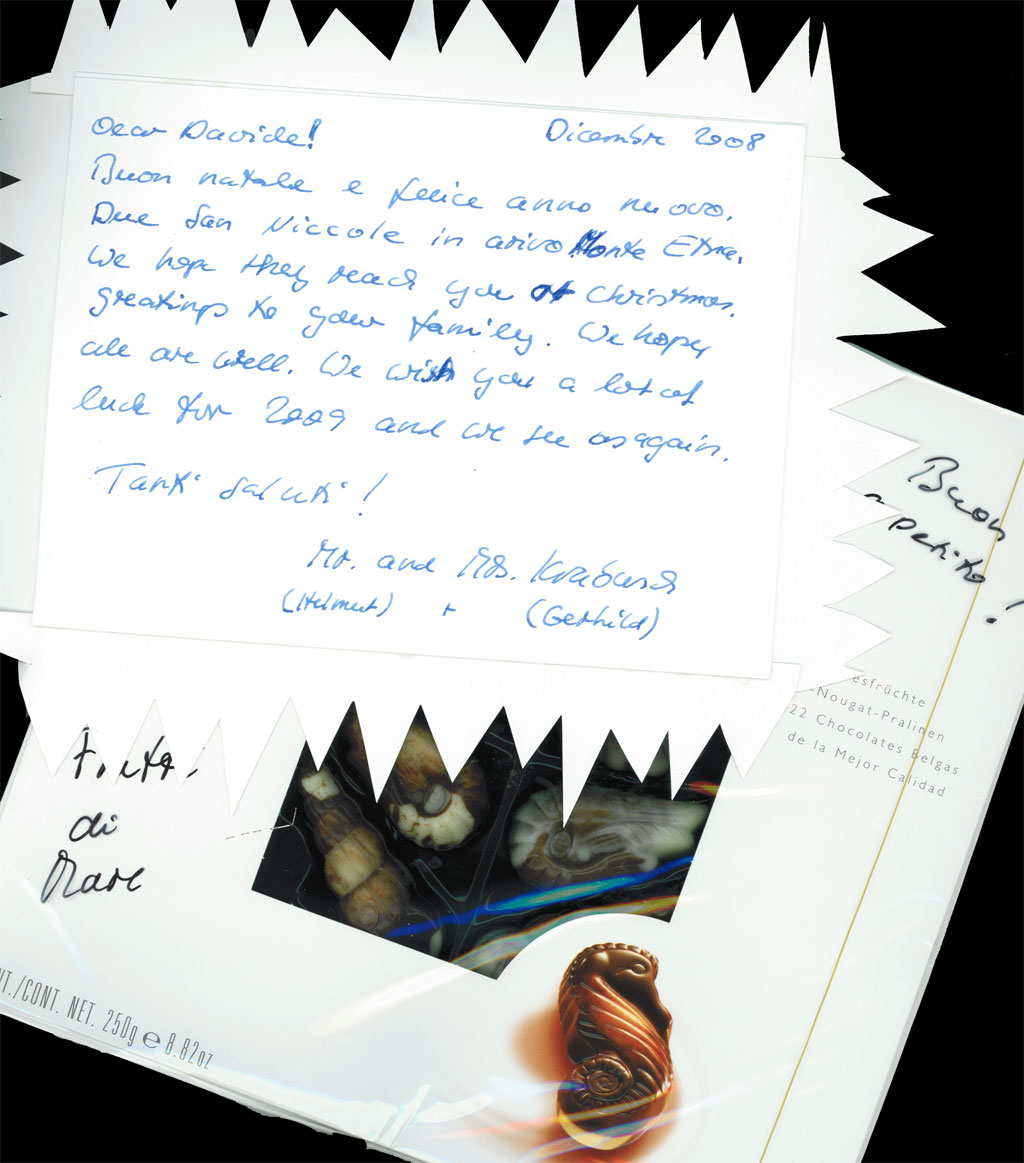 Dear Davide! Dicembre 2008
Buon natale e felice anno nuovo.
Due San Niccole in arivo Monte Etna.
We hope they reach you at Christmas.
greatings to your family. We hope
all are well. We wish you a lot of
luck for 2009 and we see us again.
Tanti saluti!
Mr. and Mrs.
(Helmut) + (Gerhild)
Buon
apetito
!
esfrüchte
-Nougat-Pralinen
22 Chocolates Belgas
de la Mejor Calidad
di
Mare
NT./CONT. NET. 250g e 8.82oz